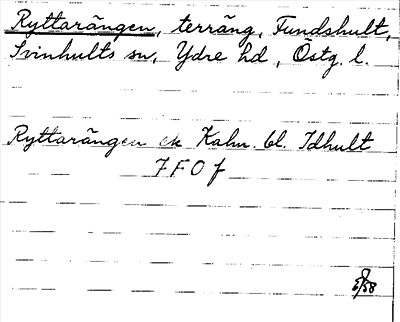 Ryttarängen, terräng, Fundshult,
Svinhults sn, Ydre hd, Östg. l.
Ryttarängen ek Kahn. bl. Idhult
7 F 0 f